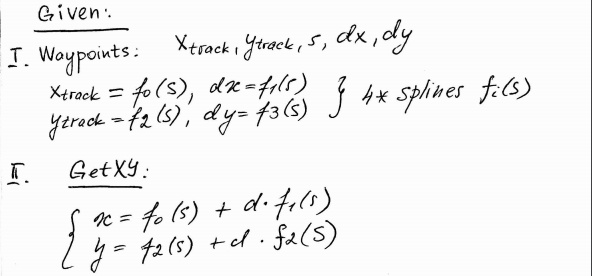 Given:
I. Waypoints: Xtrack, Ytrack, s, dx, dy
Xtrack = f0(s), dx = f1(s)
Ytrack = f2(s), dy = f3(s) } 4* splines fi(s)
II. GetXY:
{ x = f0(s) + d · f1(s)
y = f2(s) + d · f2(S)